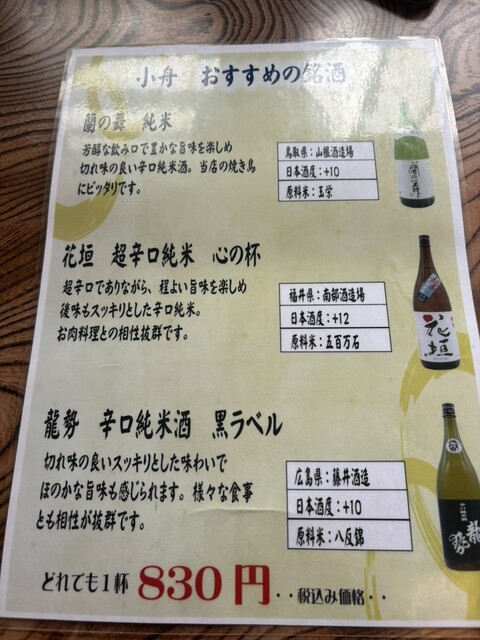 小舟　おすすめの銘酒
蘭の舞　純米
芳醇な飲み口で豊かな旨味を楽しめ
切れ味の良い辛口純米酒。当店の焼き鳥
にピッタリです。
鳥取県：山根酒造場
日本酒度：+10
原料米：玉栄
花垣　超辛口純米　心の杯
超辛口でありながら、程よい旨味を楽しめ
後味もスッキリとした辛口純米。
お肉料理との相性抜群です。
福井県：南部酒造場
日本酒度：+12
原料米：五百万石
花垣
龍勢　辛口純米酒　黒ラベル
切れ味の良いスッキリとした味わいで
ほのかな旨味も感じられます。様々な食事
とも相性が抜群です。
広島県：藤井酒造
日本酒度：+10
原料米：八反錦
龍勢
どれでも1杯 830円・・税込み価格・・